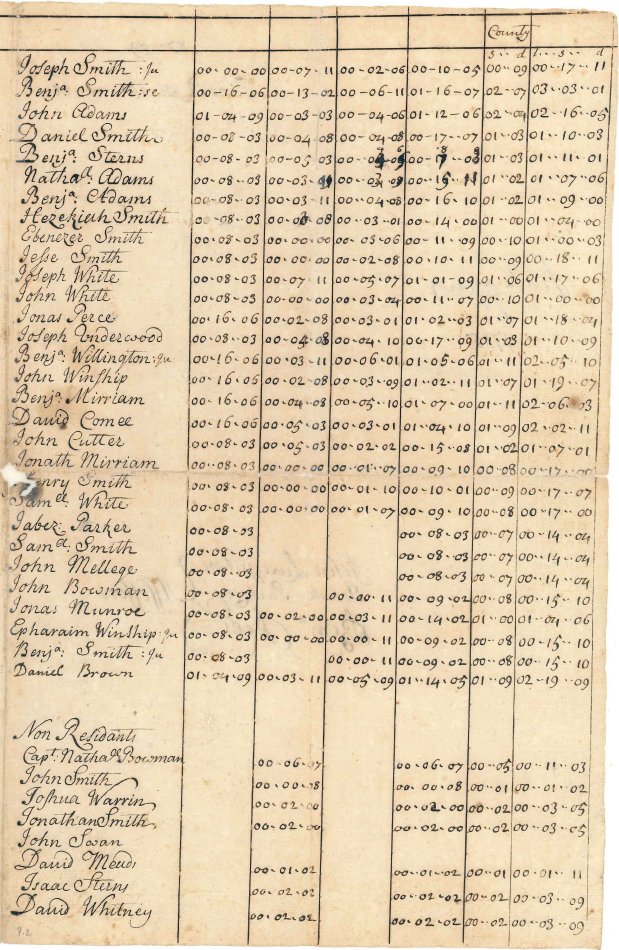 County
s d l s d
Joseph Smith : Ju 00-00-00 00-07-11 00-02-06 00-10-05 00-09 00-17-11
Benja: Smith : se 00-16-06 00-13-02 00-06-11 01-16-07 02-07 03-03-01
John Adams 01-04-09 00-03-03 00-04-06 01-12-06 02-04 02-16-05
Daniel Smith 00-08-03 00-04-08 00-04-08 00-17-07 01-03 01-10-03
Benja: Sterns 00-08-03 00-05-03 01-03 01-11-01
Nathall: Adams 00-08-03 01-02 01-07-06
Benja: Adams 00-08-03 00-03-11 00-04-08 00-16-10 01-02 01-09-00
Hezekiah Smith 00-08-03 00-03-01 00-14-00 01-00 01-04-00
Ebenezer Smith 00-08-03 00-00-00 00-03-06 00-11-09 00-10 01-00-03
Jesse Smith 00-08-03 00-00-00 00-02-08 00-10-11 00-09 00-18-11
Joseph White 00-08-03 00-07-11 00-05-07 01-01-09 01-06 01-17-06
John White 00-08-03 00-00-00 00-03-04 00-11-07 00-10 01-00-00
Jonas Perce 00-16-06 00-02-08 00-03-01 01-02-03 01-07 01-18-04
Joseph Underwood 00-08-03 00-04-08 00-04-10 00-17-09 01-03 01-10-09
Benja: Willington : Ju 00-16-06 00-03-11 00-06-01 01-05-06 01-11 02-05-10
John Winship 00-16-06 00-02-08 00-03-09 01-02-11 01-07 01-19-07
Benja: Mirriam 00-16-06 00-04-08 00-05-10 01-07-00 01-11 02-06-03
David Comee 00-16-06 00-05-03 00-03-01 01-04-10 01-09 02-02-11
John Cutter 00-08-03 00-05-03 00-02-02 00-15-08 01-02 01-07-01
Jonath Mirriam 00-08-03 00-00-00 00-01-07 00-09-10 00-08 00-17-00
Henry Smith 00-08-03 00-00-00 00-01-10 00-10-01 00-09 00-17-07
Samel: White 00-08-03 00-00-00 00-01-07 00-09-10 00-08 00-17-00
Jabez: Parker 00-08-03 00-08-03 00-07 00-14-04
Saml: Smith 00-08-03 00-08-03 00-07 00-14-04
John Mellege 00-08-03 00-08-03 00-07 00-14-04
John Bowman 00-08-03 00-00-11 00-09-02 00-08 00-15-10
Jonas Munroe 00-08-03 00-02-00 00-03-11 00-14-02 01-00 01-04-06
Epharaim Winship : Ju 00-08-03 00-00-00 00-00-11 00-09-02 00-08 00-15-10
Benja: Smith : Ju 00-08-03 00-00-11 00-09-02 00-08 00-15-10
Daniel Brown 01-04-09 00-03-11 00-05-09 01-14-05 01-09 02-19-09
Non Residants
Capt: Nathall Bowman 00-06-07 00-06-07 00-05 00-11-03
John Smith 00-00-08 00-00-08 00-01 00-01-02
Joshua Warrin 00-02-00 00-02-00 00-02 00-03-05
Jonathan Smith 00-02-00 00-02-00 00-02 00-03-05
John Swan
David Meads 00-01-02 00-01-02 00-01 00-01-11
Isaac Sterns 00-02-02 00-02-02 00-02 00-03-09
David Whitney 00-02-02 00-02-02 00-02 00-03-09
9.2